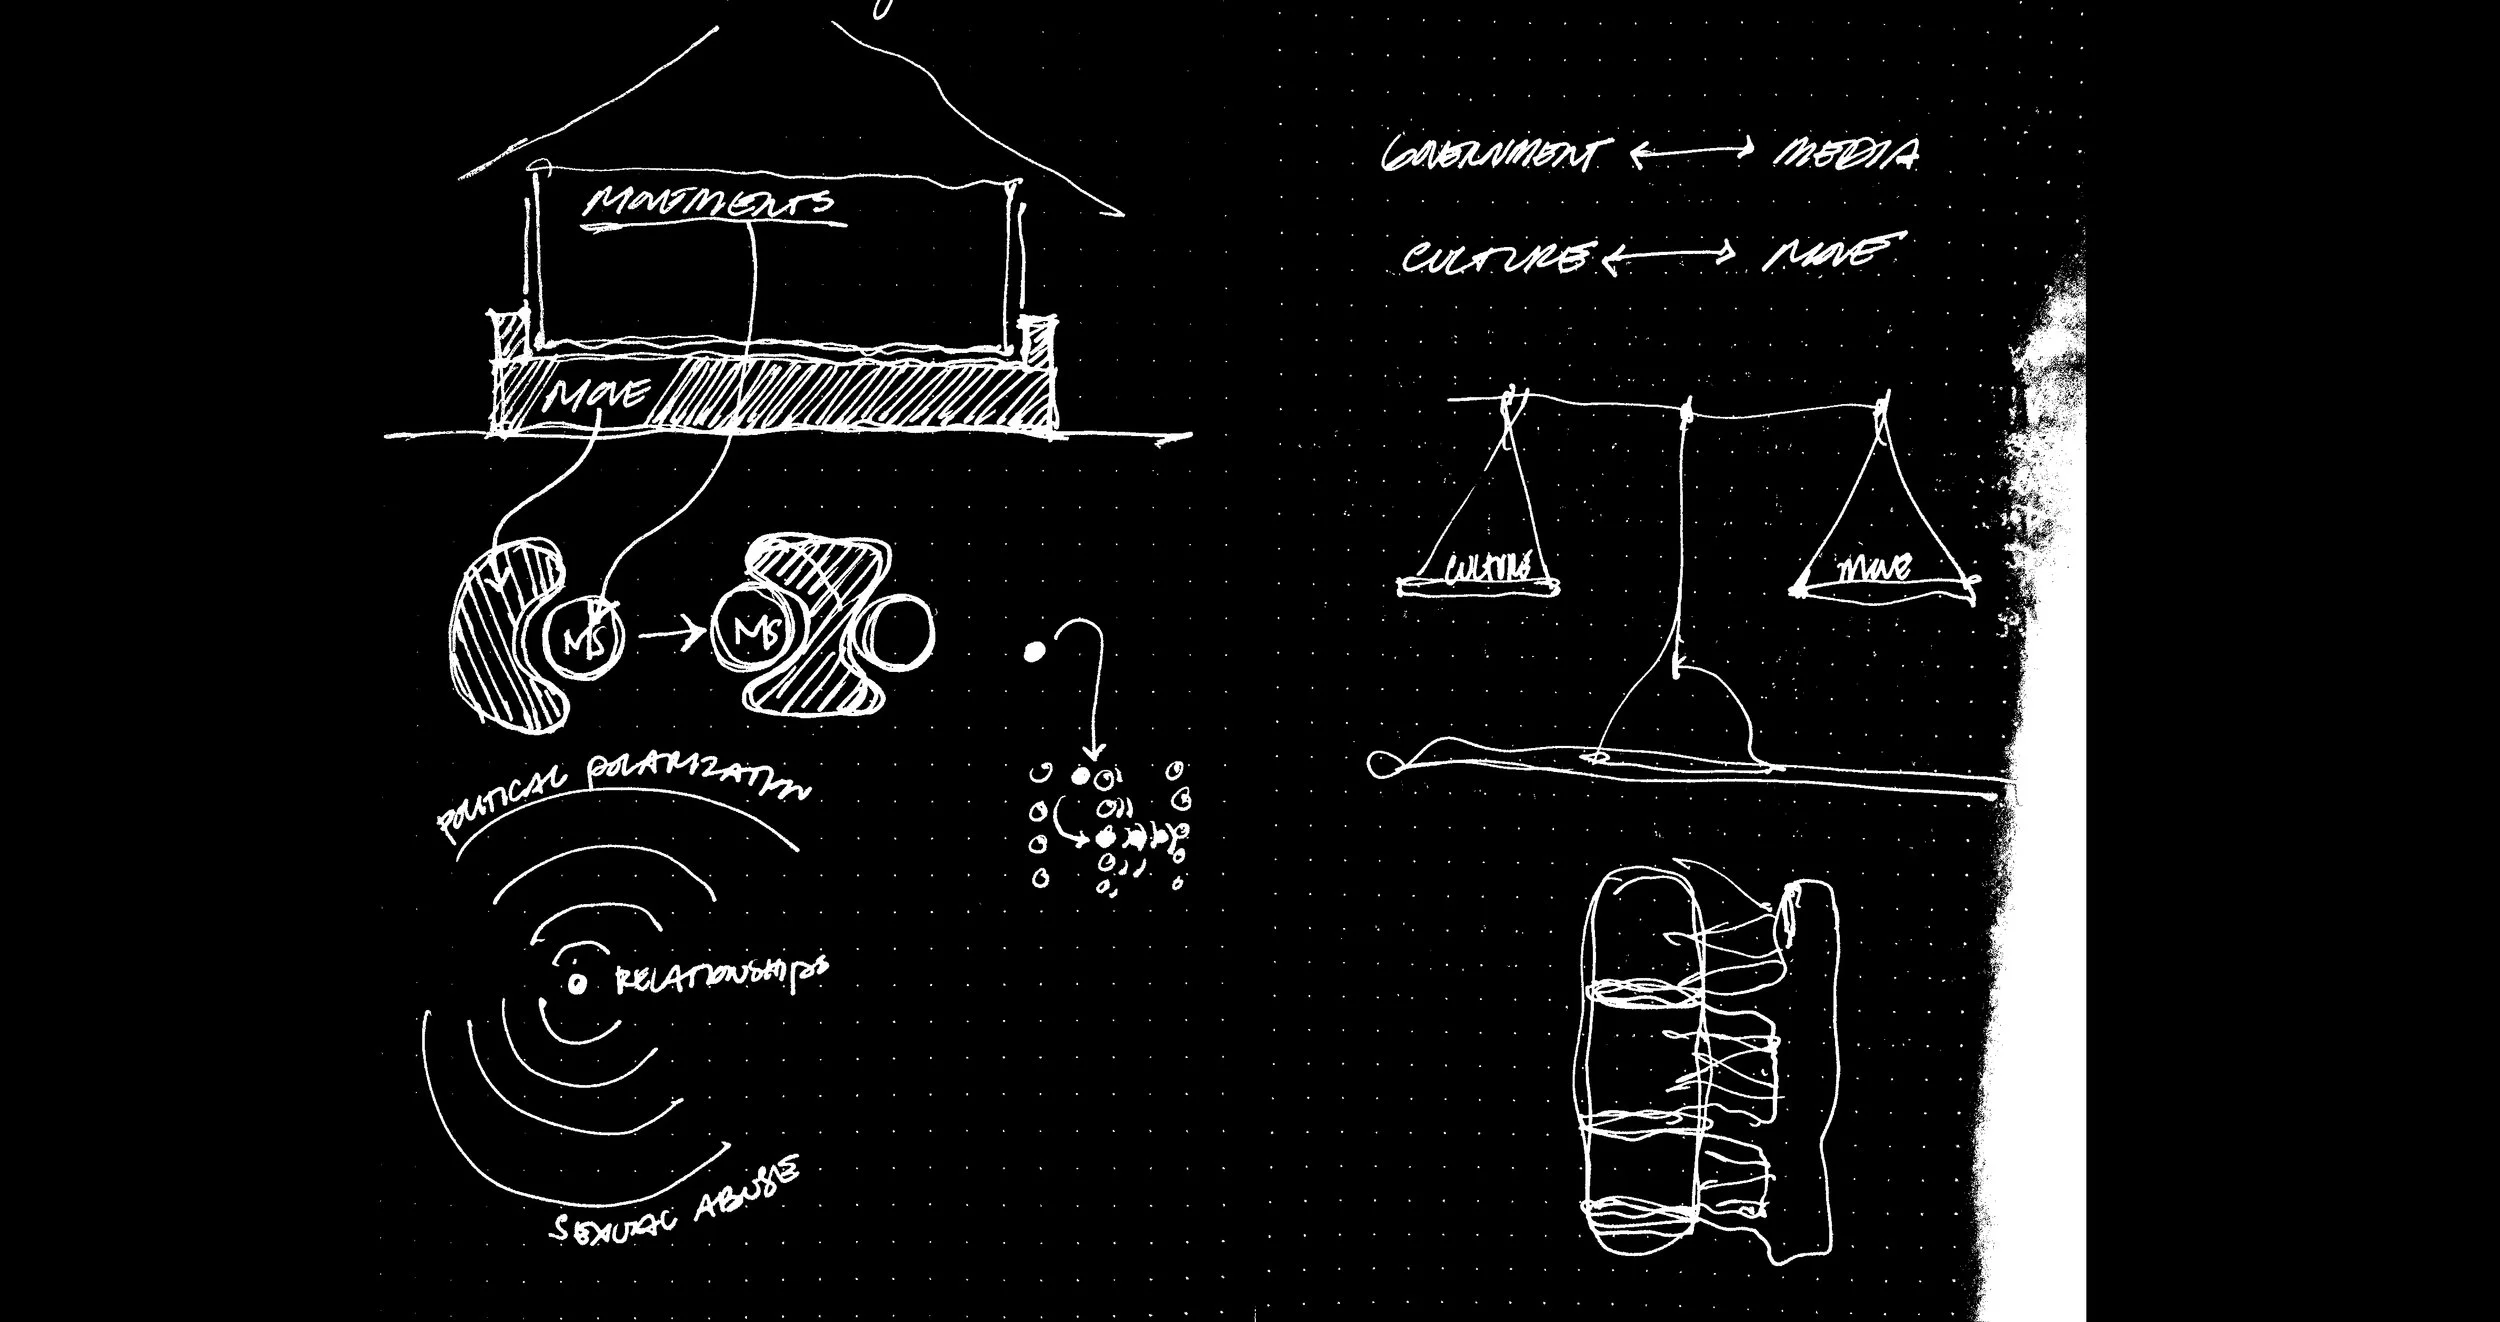 MOVEMENTS
MOVE
MS
MS
POLITICAL POLARIZATION
RELATIONSHIPS
SEXUAL ABUSE
GOVERNMENT ↔ MEDIA
CULTURE ↔ MOVE
CULTURE
MOVE